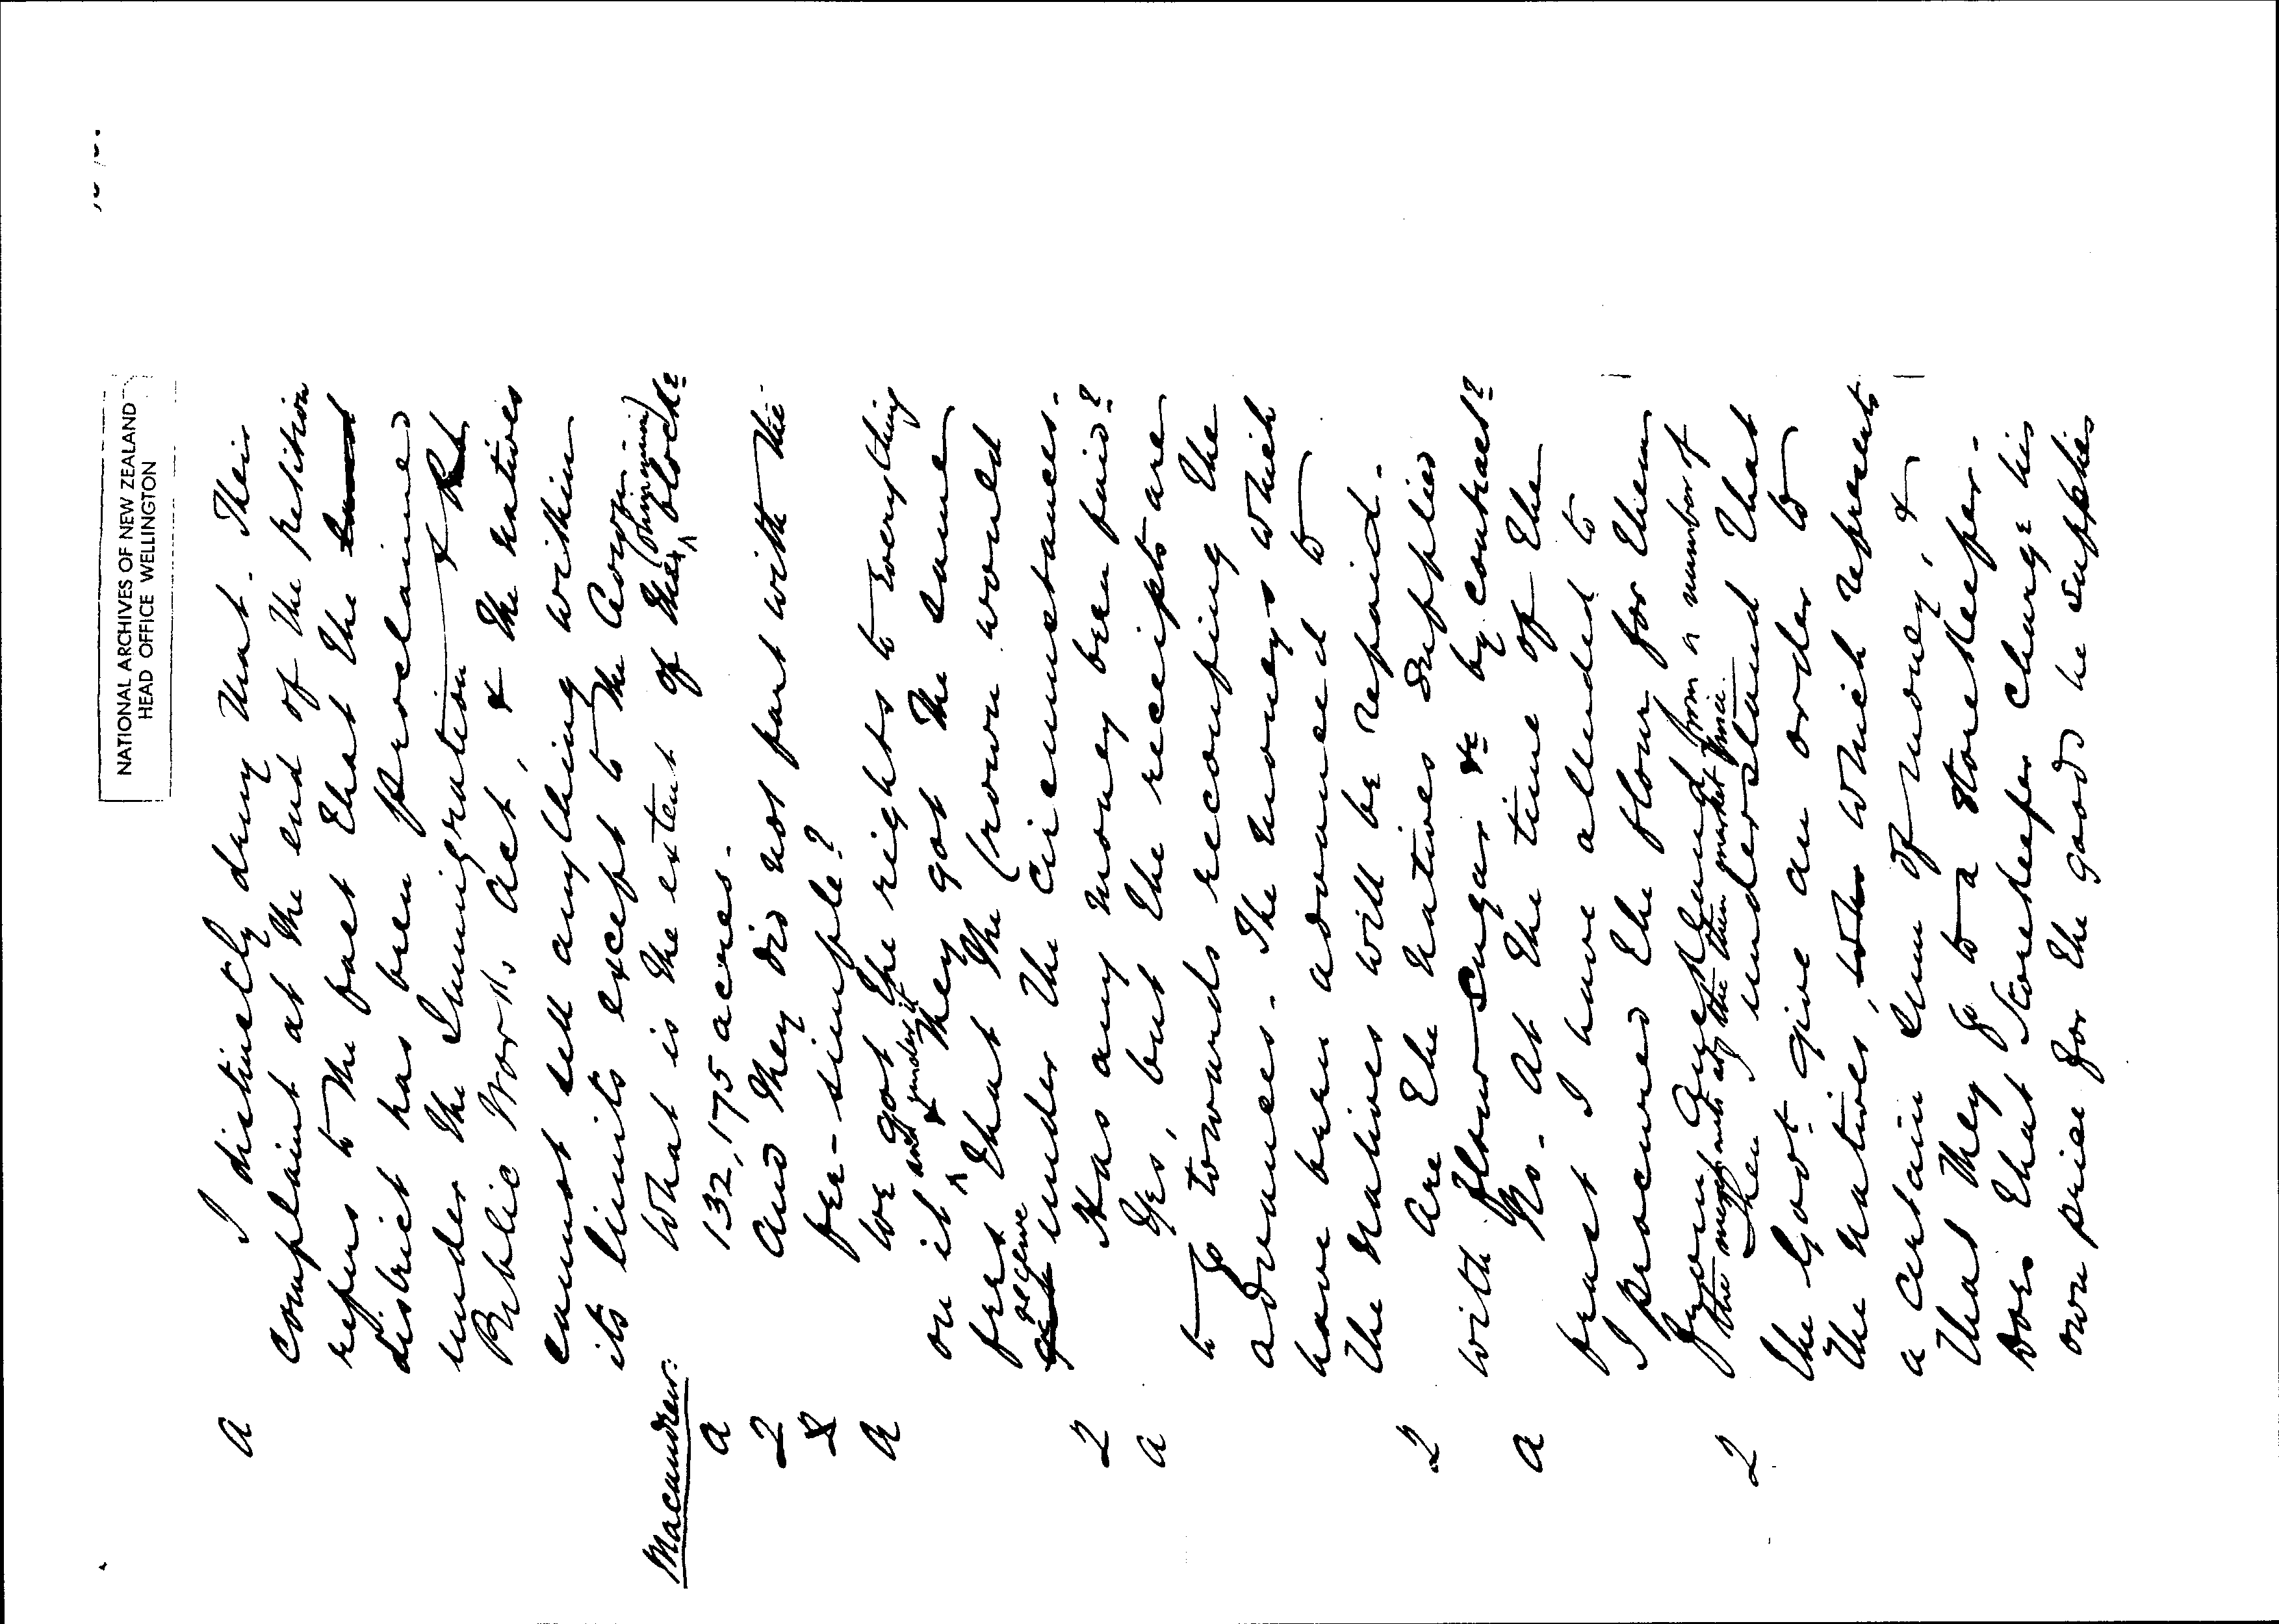 NATIONAL ARCHIVES OF NEW ZEALAND
HEAD OFFICE WELLINGTON
a I distinctly deny that. Their
complaint at the end of the petition
refers to the fact that the land
district has been proclaimed
under the Immigration &
Public Works Act, & the natives
cannot sell anything within
its limits except to the Crown.
Macandrew: What is the extent of that (Ohinemuri) block?
a 132,175 acres.
2 And they did not part with the
2 fee-simple?
a We got the rights to everything
on it and under it & they got the same
fees that the Crown would
get receive under the circumstances.
2 Has any money been paid?
a Yes, but the receipts are
to go towards recouping the
advances. The moneys which
have been advanced to
the natives will be repaid.
2 Are the natives supplied
with flour sugar &c by contract?
a No. At the time of the
feast I have alluded to
I procured the flour for them
from Auckland from a number of
the merchants at the then market price.
2 Then I understand that
the Govt. give an order to
the natives, who which represents
a certain sum of money, &
that they go to a storekeeper.
Does that storekeeper charge his
own price for the goods he supplies